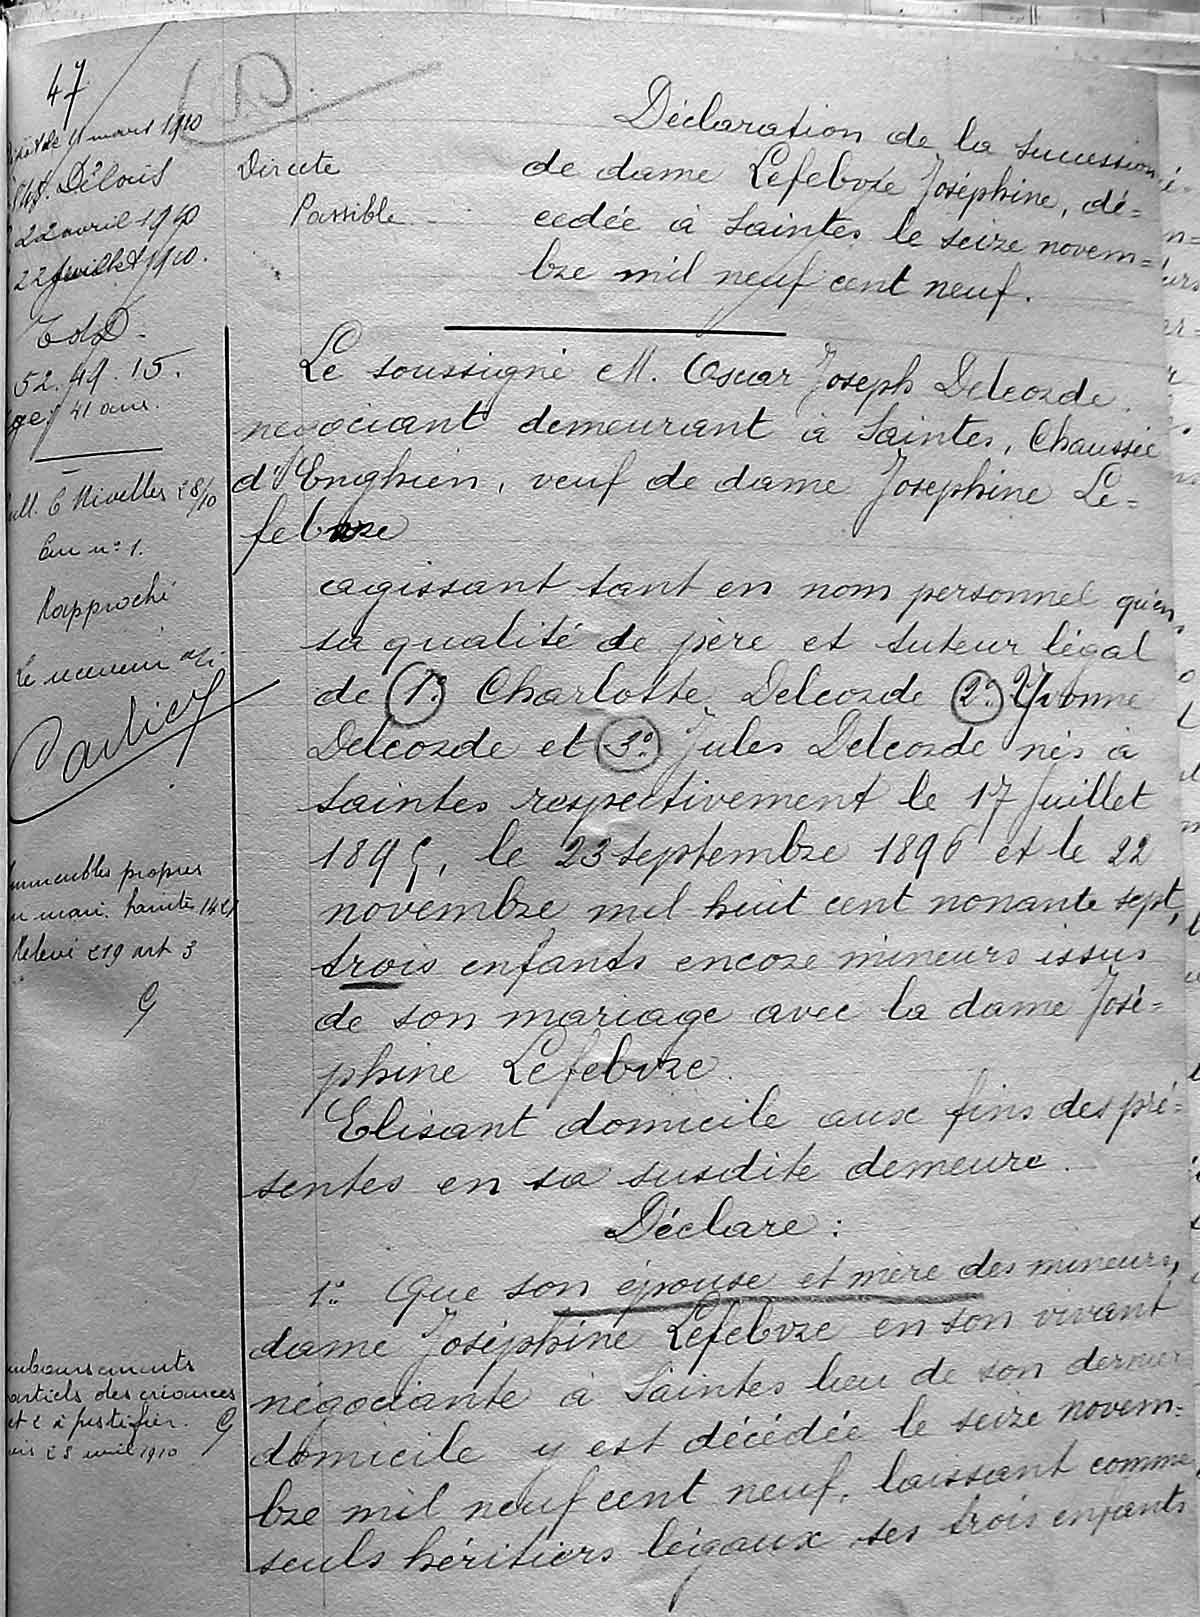 47
11 mars 1910
Délais
22 avril 1910
22 juillet 1910.
52. 49. 15.
41 ans.
Nivelles 28/10
n° 1.
Rapproché
Le receveur
immeubles propres
mari. Saintes
Relevé 219 art 3
G
remboursements
partiels des créances
et c à justifier. G
avril 1910
D
Directe
Passible
Déclaration de la succession
de dame Lefebvre Joséphine, dé=
cedée à Saintes le seize novem=
bre mil neuf cent neuf.
Le soussigné M. Oscar Joseph Delcorde
negociant demeurant à Saintes, Chaussée
d'Enghien, veuf de dame Josephine Le=
febvre
agissant tant en nom personnel qu'en
sa qualité de père et tuteur légal
de 1° Charlotte Delcorde 2° Yvonne
Delcorde et 3° Jules Delcorde nés à
Saintes respectivement le 17 Juillet
1895, le 23 septembre 1896 et le 22
novembre mil huit cent nonante sept,
trois enfants encore mineurs issus
de son mariage avec la dame José=
phine Lefebvre.
Elisant domicile aux fins des pré=
sentes en sa susdite demeure.
Déclare :
1° Que son épouse et mère des mineurs,
dame Joséphine Lefebvre en son vivant
négociante à Saintes lieu de son dernier
domicile y est décédée le seize novem=
bre mil neuf cent neuf, laissant comme
seuls héritiers légaux ses trois enfants